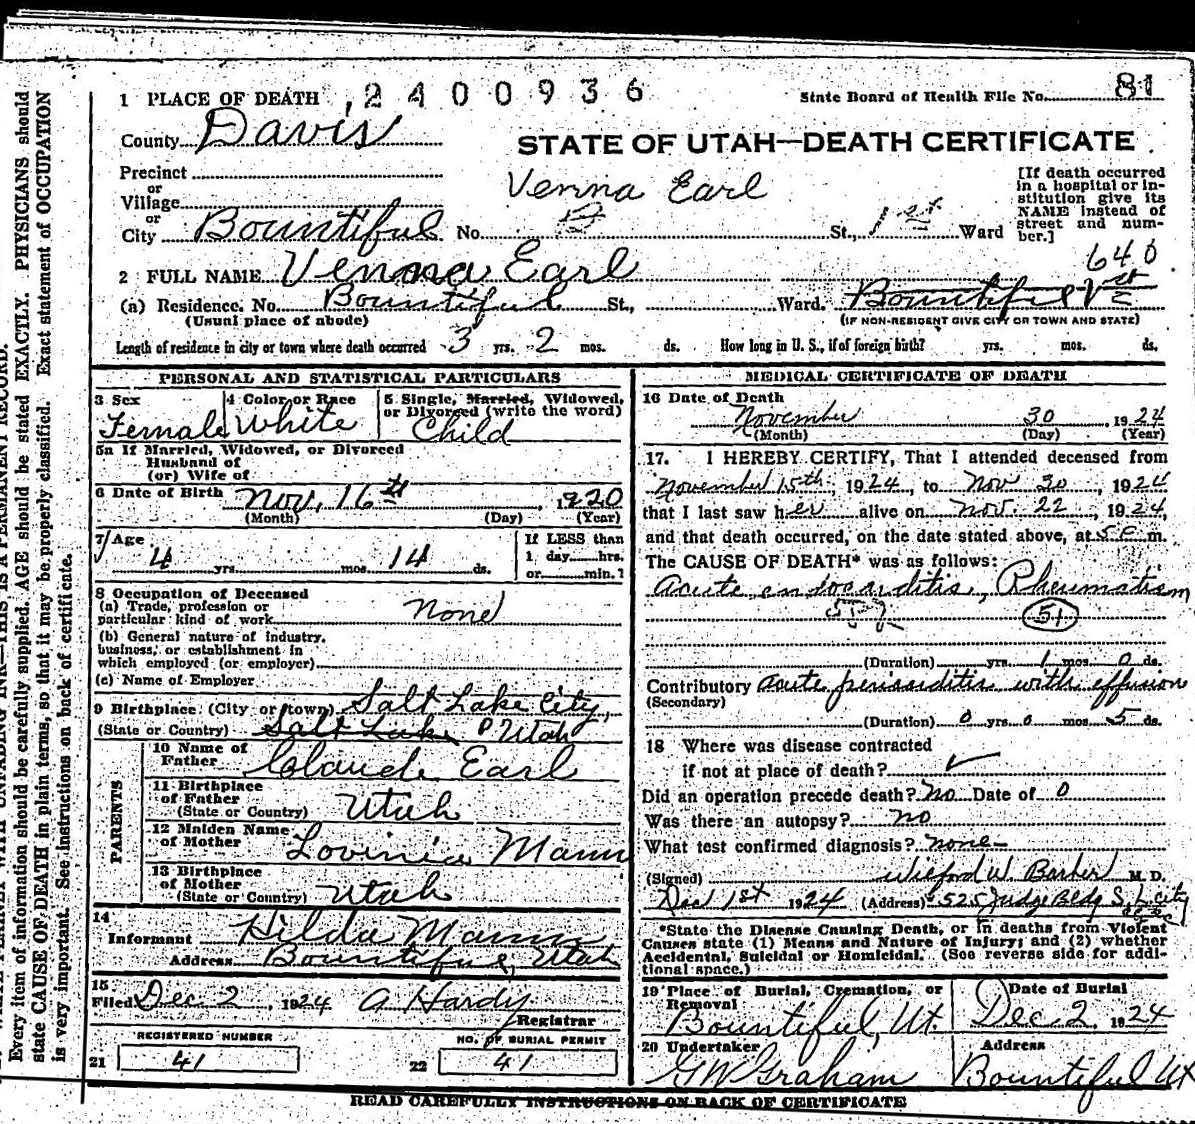 1 PLACE OF DEATH 2400936 State Board of Health File No. 81
County Davis
STATE OF UTAH—DEATH CERTIFICATE
Precinct
or
Village
or
City Bountiful No. St., 1st Ward
Venna Earl
[If death occurred in a hospital or institution give its NAME instead of street and number.]
640
2 FULL NAME Venna Earl
(a) Residence. No. Bountiful St., Ward. Bountiful 1st
(Usual place of abode) (IF NON-RESIDENT GIVE CITY OR TOWN AND STATE)
Length of residence in city or town where death occurred 3 yrs. 2 mos. ds. How long in U. S., if of foreign birth? yrs. mos. ds.
PERSONAL AND STATISTICAL PARTICULARS
3 Sex 4 Color or Race 5 Single, Married, Widowed,
or Divorced (write the word)
Female White Child
5a If Married, Widowed, or Divorced
Husband of
(or) Wife of
6 Date of Birth Nov. 16th, 1920
(Month) (Day) (Year)
7 Age If LESS than
4 yrs. mos. 14 ds. 1 day hrs.
or min.?
8 Occupation of Deceased
(a) Trade, profession or
particular kind of work None
(b) General nature of industry,
business, or establishment in
which employed (or employer)
(c) Name of Employer
9 Birthplace (City or town) Salt Lake City,
(State or Country) Salt Lake Utah
PARENTS
10 Name of
Father Claude Earl
11 Birthplace
of Father
(State or Country) Utah
12 Maiden Name
of Mother Lovinia Mann
13 Birthplace
of Mother
(State or Country) Utah
14
Informant Hilda Mann
Address Bountiful, Utah
15
Filed Dec 2, 1924 A Hardy
Registrar
REGISTERED NUMBER NO. OF BURIAL PERMIT
21 41 22 41
MEDICAL CERTIFICATE OF DEATH
16 Date of Death
November 30 1924
(Month) (Day) (Year)
17. I HEREBY CERTIFY, That I attended deceased from
November 15th, 1924, to Nov 30, 1924
that I last saw her alive on Nov. 22, 1924,
and that death occurred, on the date stated above, at 5 m.
The CAUSE OF DEATH* was as follows:
Acute endocarditis, Rheumatism
51
(Duration) yrs. 1 mos. 0 ds.
Contributory acute pericarditis with effusion
(Secondary)
(Duration) 0 yrs. 0 mos. 5 ds.
18 Where was disease contracted
if not at place of death?
Did an operation precede death? no Date of 0
Was there an autopsy? no
What test confirmed diagnosis? none
(Signed) Wilford W. Barber M. D.
Dec 1st 1924 (Address) 525 Judge Bldg S. L. City
*State the Disease Causing Death, or in deaths from Violent
Causes state (1) Means and Nature of Injury; and (2) whether
Accidental, Suicidal or Homicidal. (See reverse side for addi-
tional space.)
19 Place of Burial, Cremation, or Date of Burial
Removal
Bountiful, Ut. Dec 2, 1924
20 Undertaker Address
G W Graham Bountiful Ut
READ CAREFULLY INSTRUCTIONS ON BACK OF CERTIFICATE
Every item of information should be carefully supplied. AGE should be stated EXACTLY. PHYSICIANS should
state CAUSE OF DEATH in plain terms, so that it may be properly classified. Exact statement of OCCUPATION
is very important. See instructions on back of certificate.